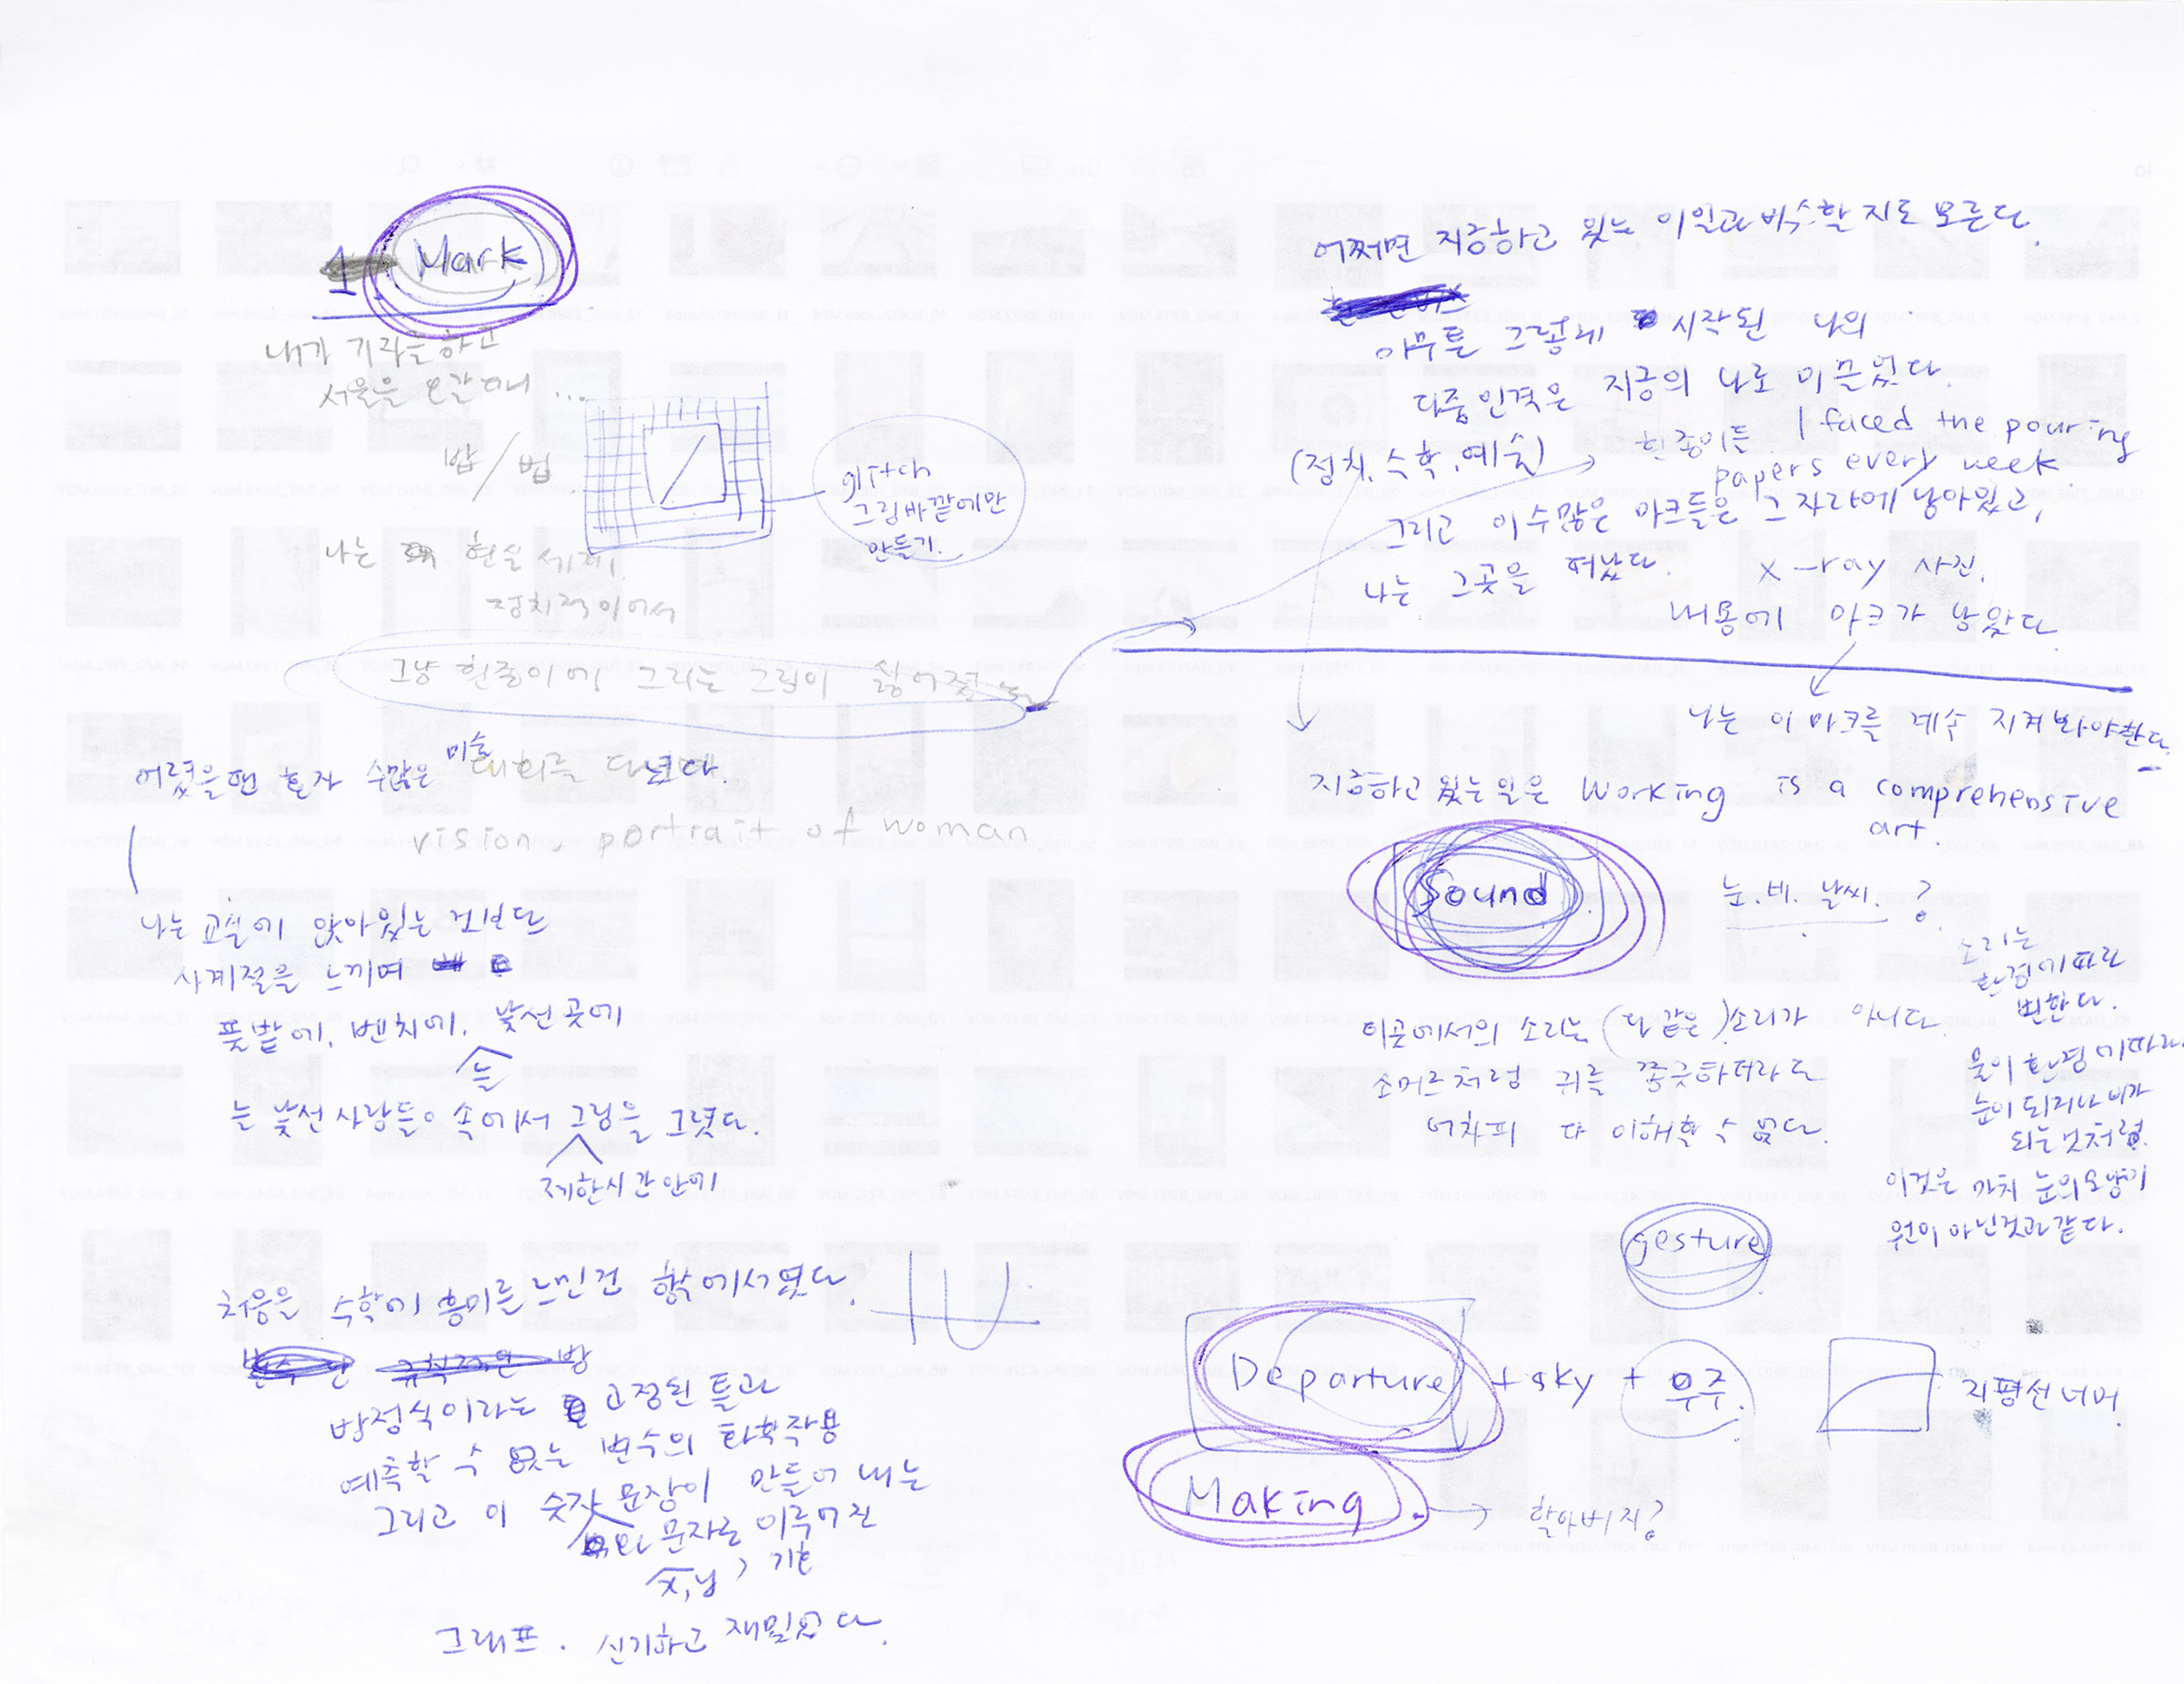 1. Mark
내가 기차를 하고
서울을 오갈때니 ...
밥 / 법
glitch
그림바깥에만
만들기.
나는 현실 세계
정치적이어서
그냥 흰종이에 그리는 그림이 싫어졌
어렸을땐 혼자 수많은 미술 대회를 다녔다.
vision, portrait of woman
나는 교실에 앉아있는 것보다
사계절을 느끼며
풀밭에, 벤치에, 낯선 곳에
늘
늘 낯선 사람들 속에서 그림을 그렸다.
제한시간 안에
처음은 수학에 흥미를 느낀건 함수에서였다.
방정식이라는 고정된 틀과
예측할 수 없는 변수의 화학작용
그리고 이 숫자 문장이 만들어 내는
문자로 이루어진
x, y, 기호
그래프. 신기하고 재밌었다.
어쩌면 지금하고 있는 이일과 비슷할 지도 모른다.
아무튼 그렇게 시작된 나의
다중인격은 지금의 나로 이끌었다.
(정치, 수학, 예술) 흰종이들 I faced the pouring
papers every week
그리고 이 수많은 마크들은 그 자리에 남아있고,
나는 그곳을 떠났다. X-ray 사진.
내몸에 마크가 남았다.
나는 이 마크를 계속 지켜봐야한다.
지금하고 있는 일은 Working is a comprehensive
art.
Sound 눈. 비. 날씨. ?
소리는
환경에따라
변한다.
물이 환경에따라
눈이 되거나 비가
되는것처럼.
이곳에서의 소리는 (다 같은) 소리가 아니다.
소머즈처럼 귀를 쫑긋하더라도
어차피 다 이해할 수 없다.
이것은 마치 눈의모양이
원이 아닌것과 같다.
gesture
Departure + sky + 우주. 지평선너머.
Making → 할아버지?